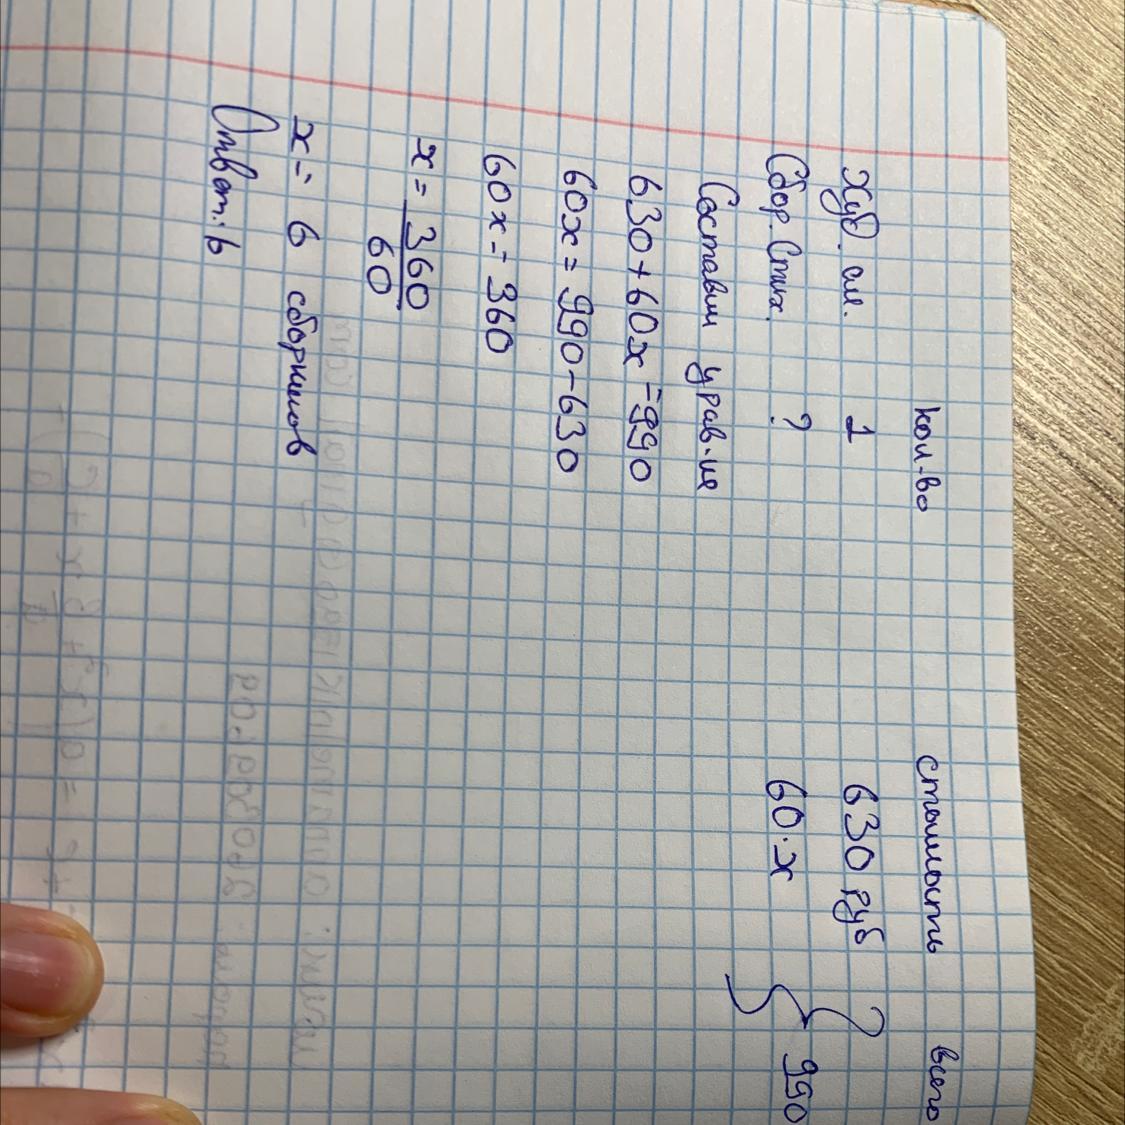 кол-во стоимость всего
Худ. ал. 1 630 руб
Сбор. Стих. ? 60·x } 990
Составим урав-ие
630+60x=990
60x=990-630
60x=360
x=360/60
x=6 сборников
Ответ: 6